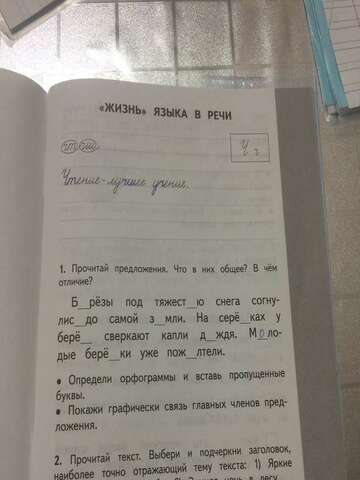 «ЖИЗНЬ» ЯЗЫКА В РЕЧИ
Ч ч
Чтение-лучшее учение.
1. Прочитай предложения. Что в них общее? В чём
отличие?
Б__рёзы под тяжест__ю снега согну-
лис__ до самой з__мли. На серё__ках у
берё__ сверкают капли д__ждя. Моло-
дые берё__ки уже пож__лтели.
• Определи орфограммы и вставь пропущенные
буквы.
• Покажи графически связь главных членов пред-
ложения.
2. Прочитай текст. Выбери и подчеркни заголовок,
наиболее точно отражающий тему текста: 1) Яркие